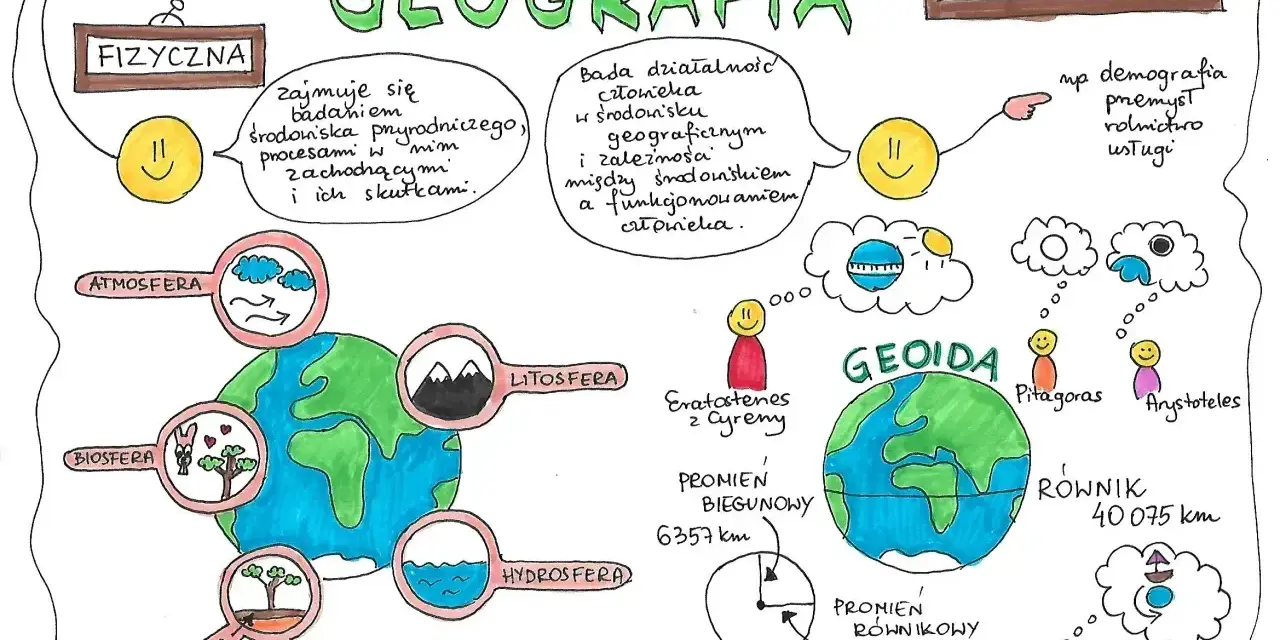 GEOGRAFIA
FIZYCZNA
zajmuje się
badaniem
środowiska przyrodniczego,
procesami w nim
zachodzącymi
i ich skutkami.
Bada działalność
człowieka
w środowisku
geograficznym
i zależności
między środowiskiem
a funkcjonowaniem
człowieka.
np demografia
przemysł
rolnictwo
usługi
ATMOSFERA
LITOSFERA
BIOSFERA
HYDROSFERA
Eratostenes
z Cyreny
GEOIDA
Pitagoras
Arystoteles
PROMIEŃ
BIEGUNOWY
6357 km
RÓWNIK
40 075 km
PROMIEŃ
RÓWNIKOWY